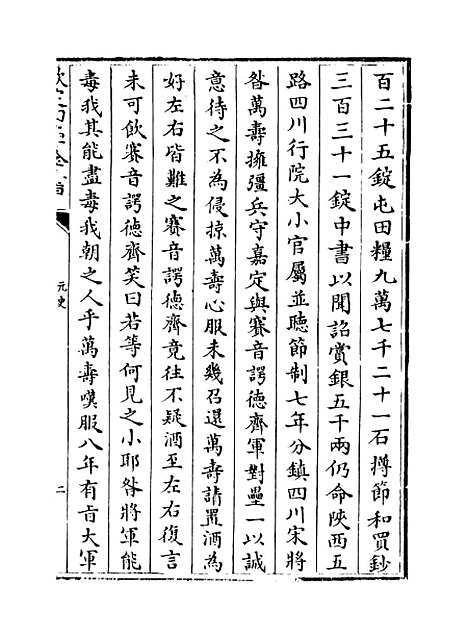 百二十五錠屯田糧九萬七千二十一石撙節和買鈔
三百三十一錠中書以聞詔賞銀五千兩仍命陜西五
路四川行院大小官屬並聽節制七年分鎮四川宋將
昝萬壽擁彊兵守嘉定與賽音諤德齊軍對壘一以誠
意待之不為侵掠萬壽心服未幾召還萬壽請置酒為
好左右皆難之賽音諤德齊竟往不疑酒至左右復言
未可飲賽音諤德齊笑曰若等何見之小耶昝將軍能
毒我其能盡毒我朝之人乎萬壽嘆服八年有㫖大軍
欽定四庫全書
元史
二